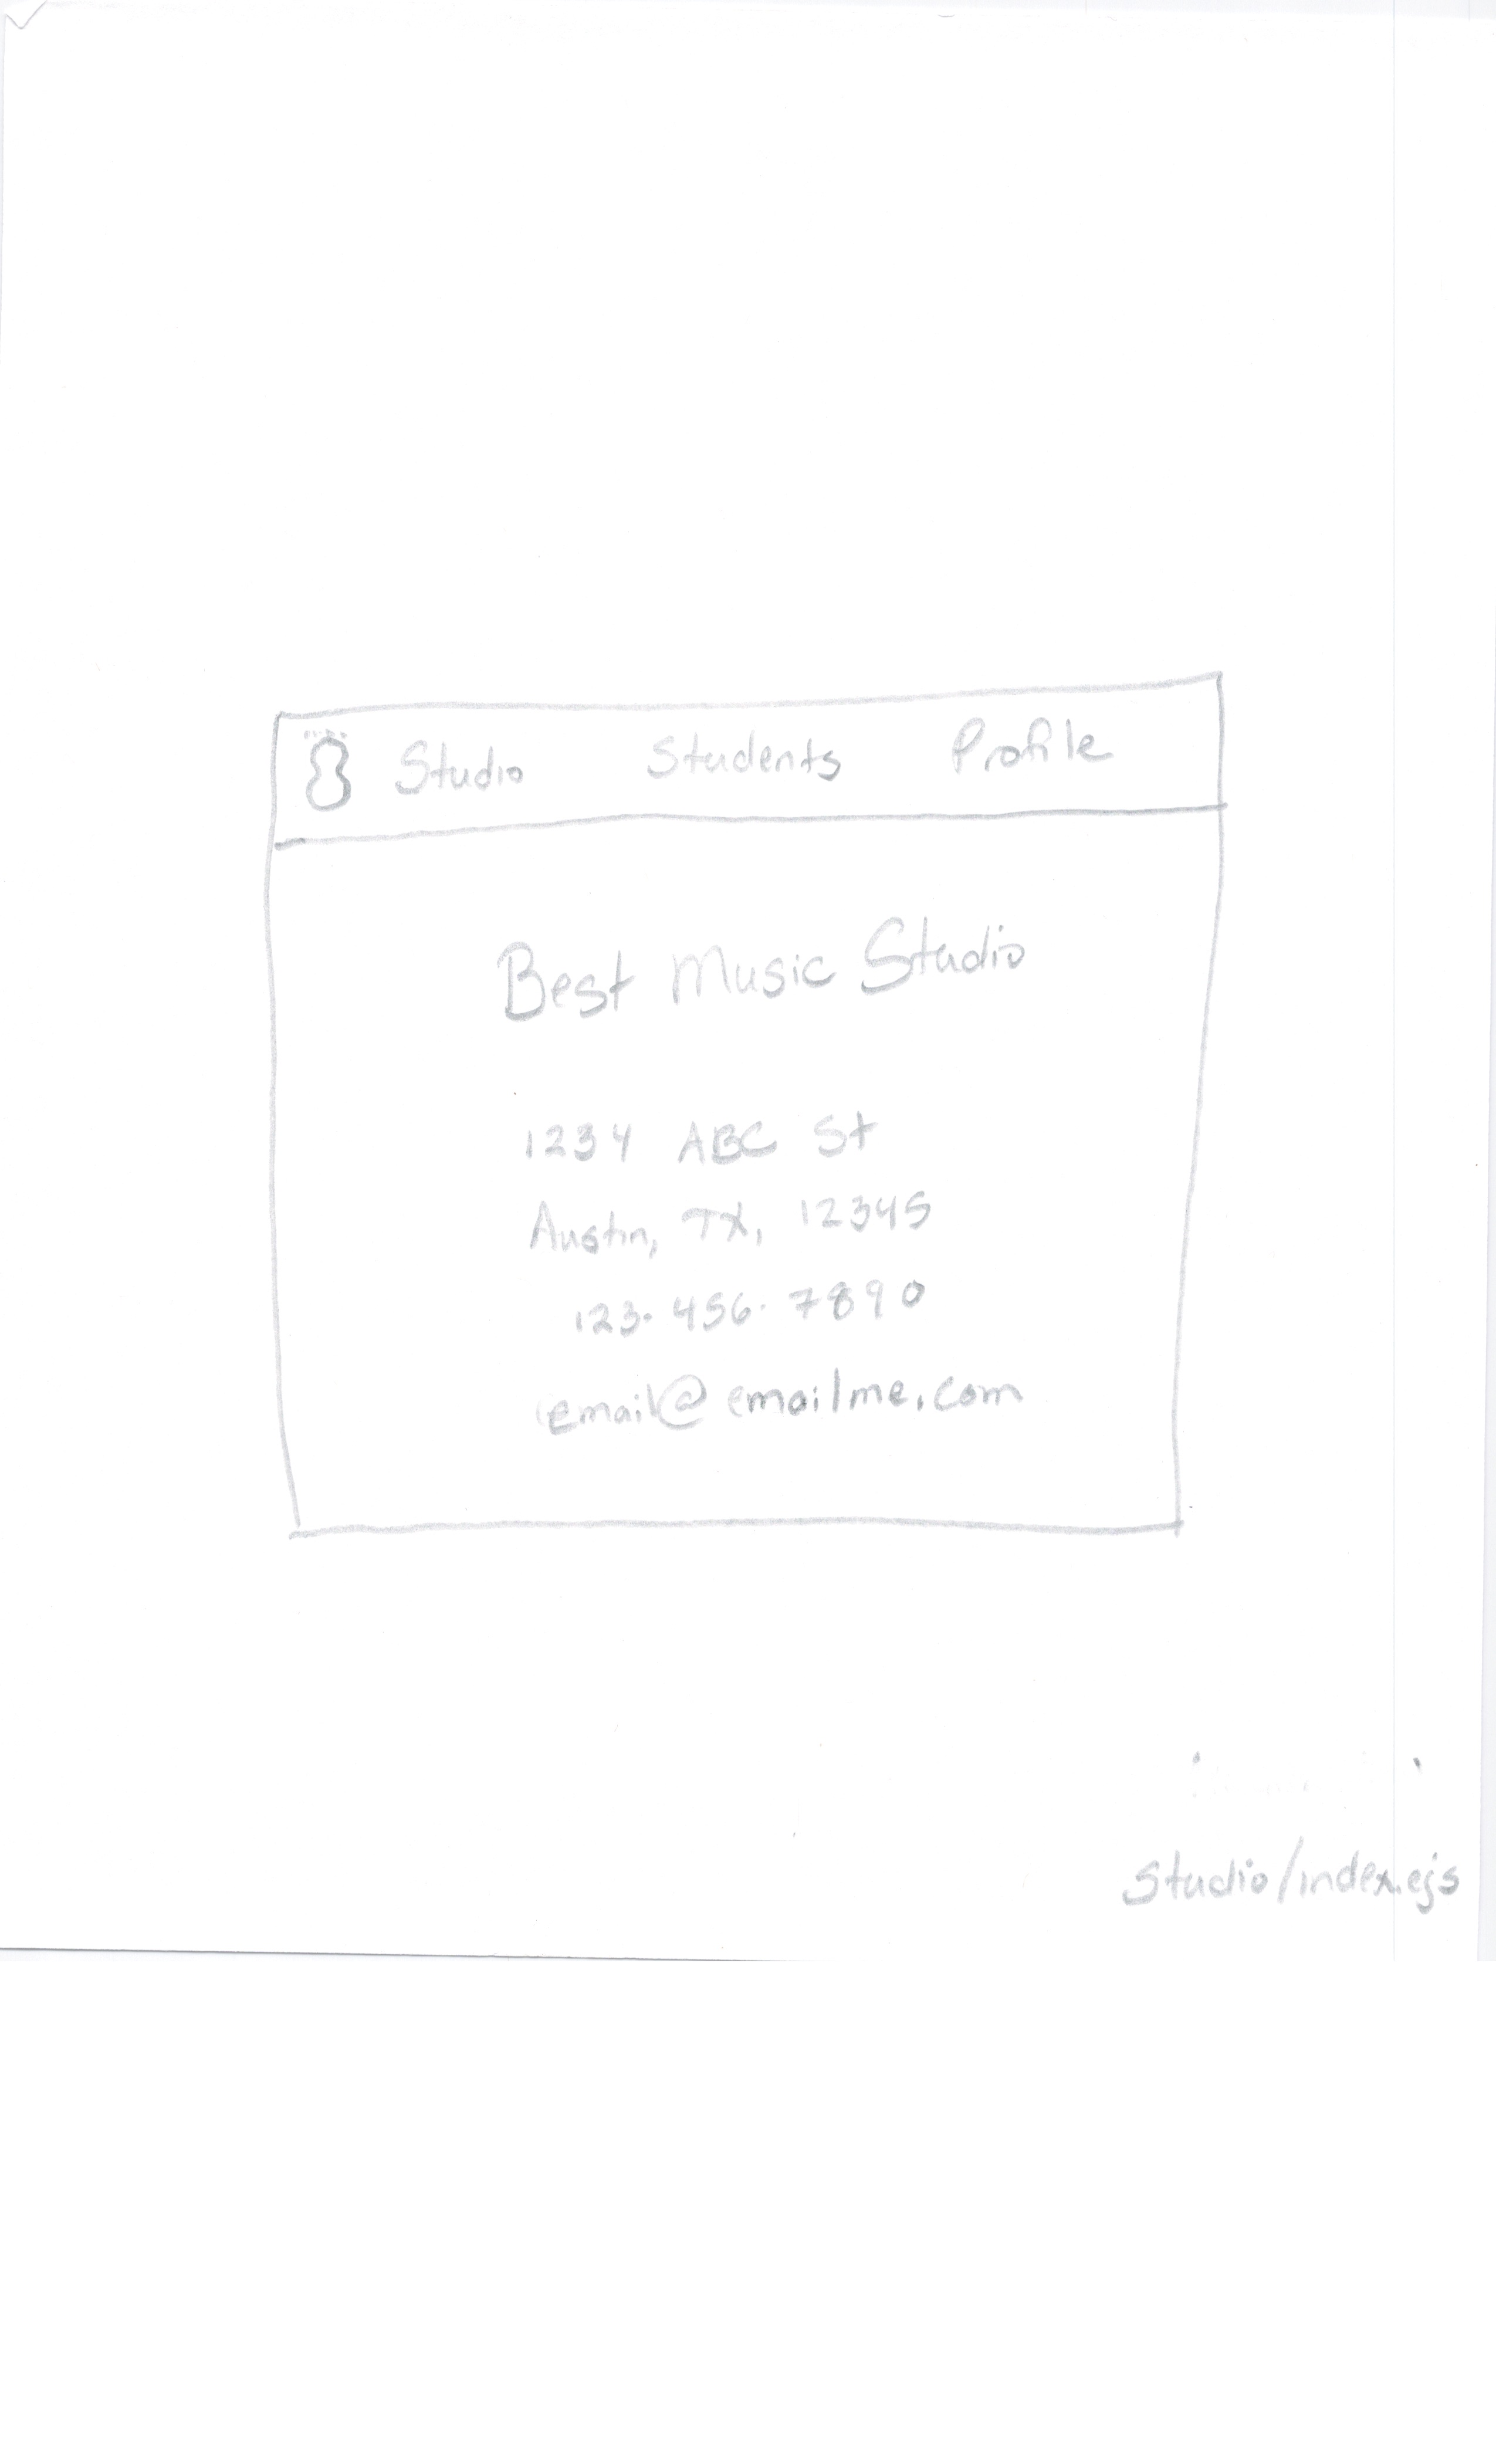 Studio Students Profile
Best Music Studio
1234 ABC St
Austin, TX, 12345
123-456-7890
email@emailme.com
Studio/index.ejs